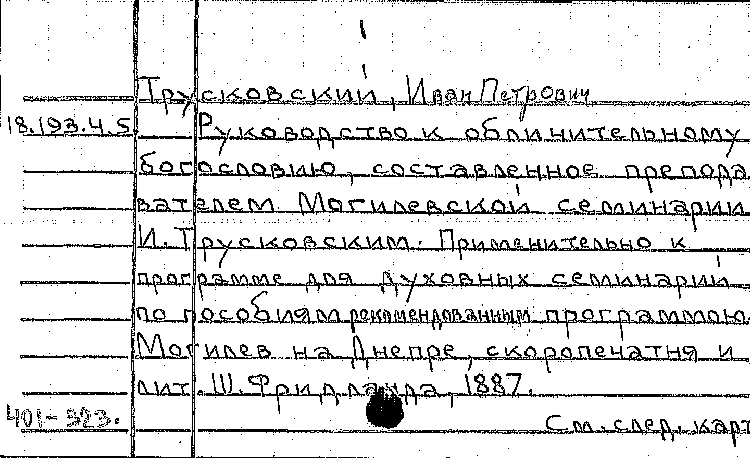 Трусковский, Иван Петрович
18.193.4.5. Руководство к обличительному
богословию, составленное препода
вателем Могилевской семинарии
И. Трусковским. Применительно к
программе для духовных семинарий
по пособиям рекомендованным программою.
Могилев на Днепре, скоропечатня и
лит. Ш. Фридланда, 1887.
401-323.
См. след. карт